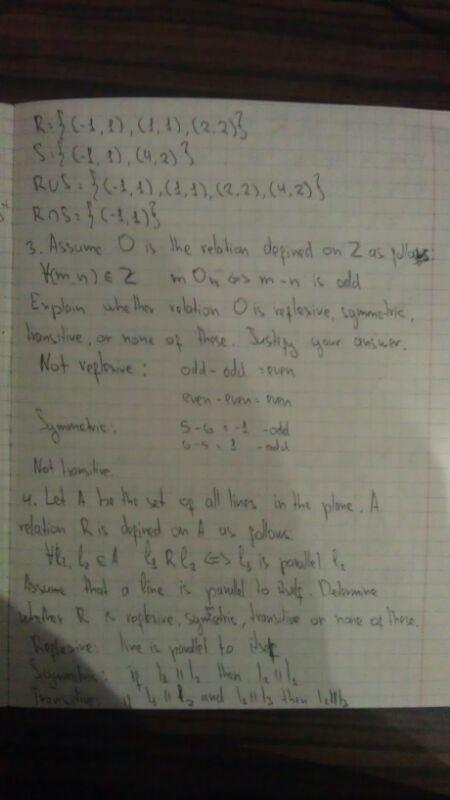 R={(-1,1),(1,1),(2,2)}
S={(-1,1),(4,2)}
R∪S={(-1,1),(1,1),(2,2),(4,2)}
R∩S={(-1,1)}
3. Assume O is the relation defined on Z as follows:
∀(m,n)∈Z m O n ⇔ m-n is odd
Explain whether relation O is reflexive, symmetric,
transitive, or none of these. Justify your answer.
Not reflexive: odd-odd=even
even-even=even
Symmetric: 5-6=-1 -odd
6-5=1 -odd
Not transitive.
4. Let A be the set of all lines in the plane. A
relation R is defined on A as follows:
∀l₁, l₂ ∈ A l₁ R l₂ ⇔ l₁ is parallel l₂
Assume that a line is parallel to itself. Determine
whether R is reflexive, symetric, transitive or none of these.
Reflexive: line is parallel to itself
Symmetric: if l₁ || l₂ then l₂ || l₁
Transitive: if l₁ || l₂ and l₂ || l₃ then l₁ || l₃